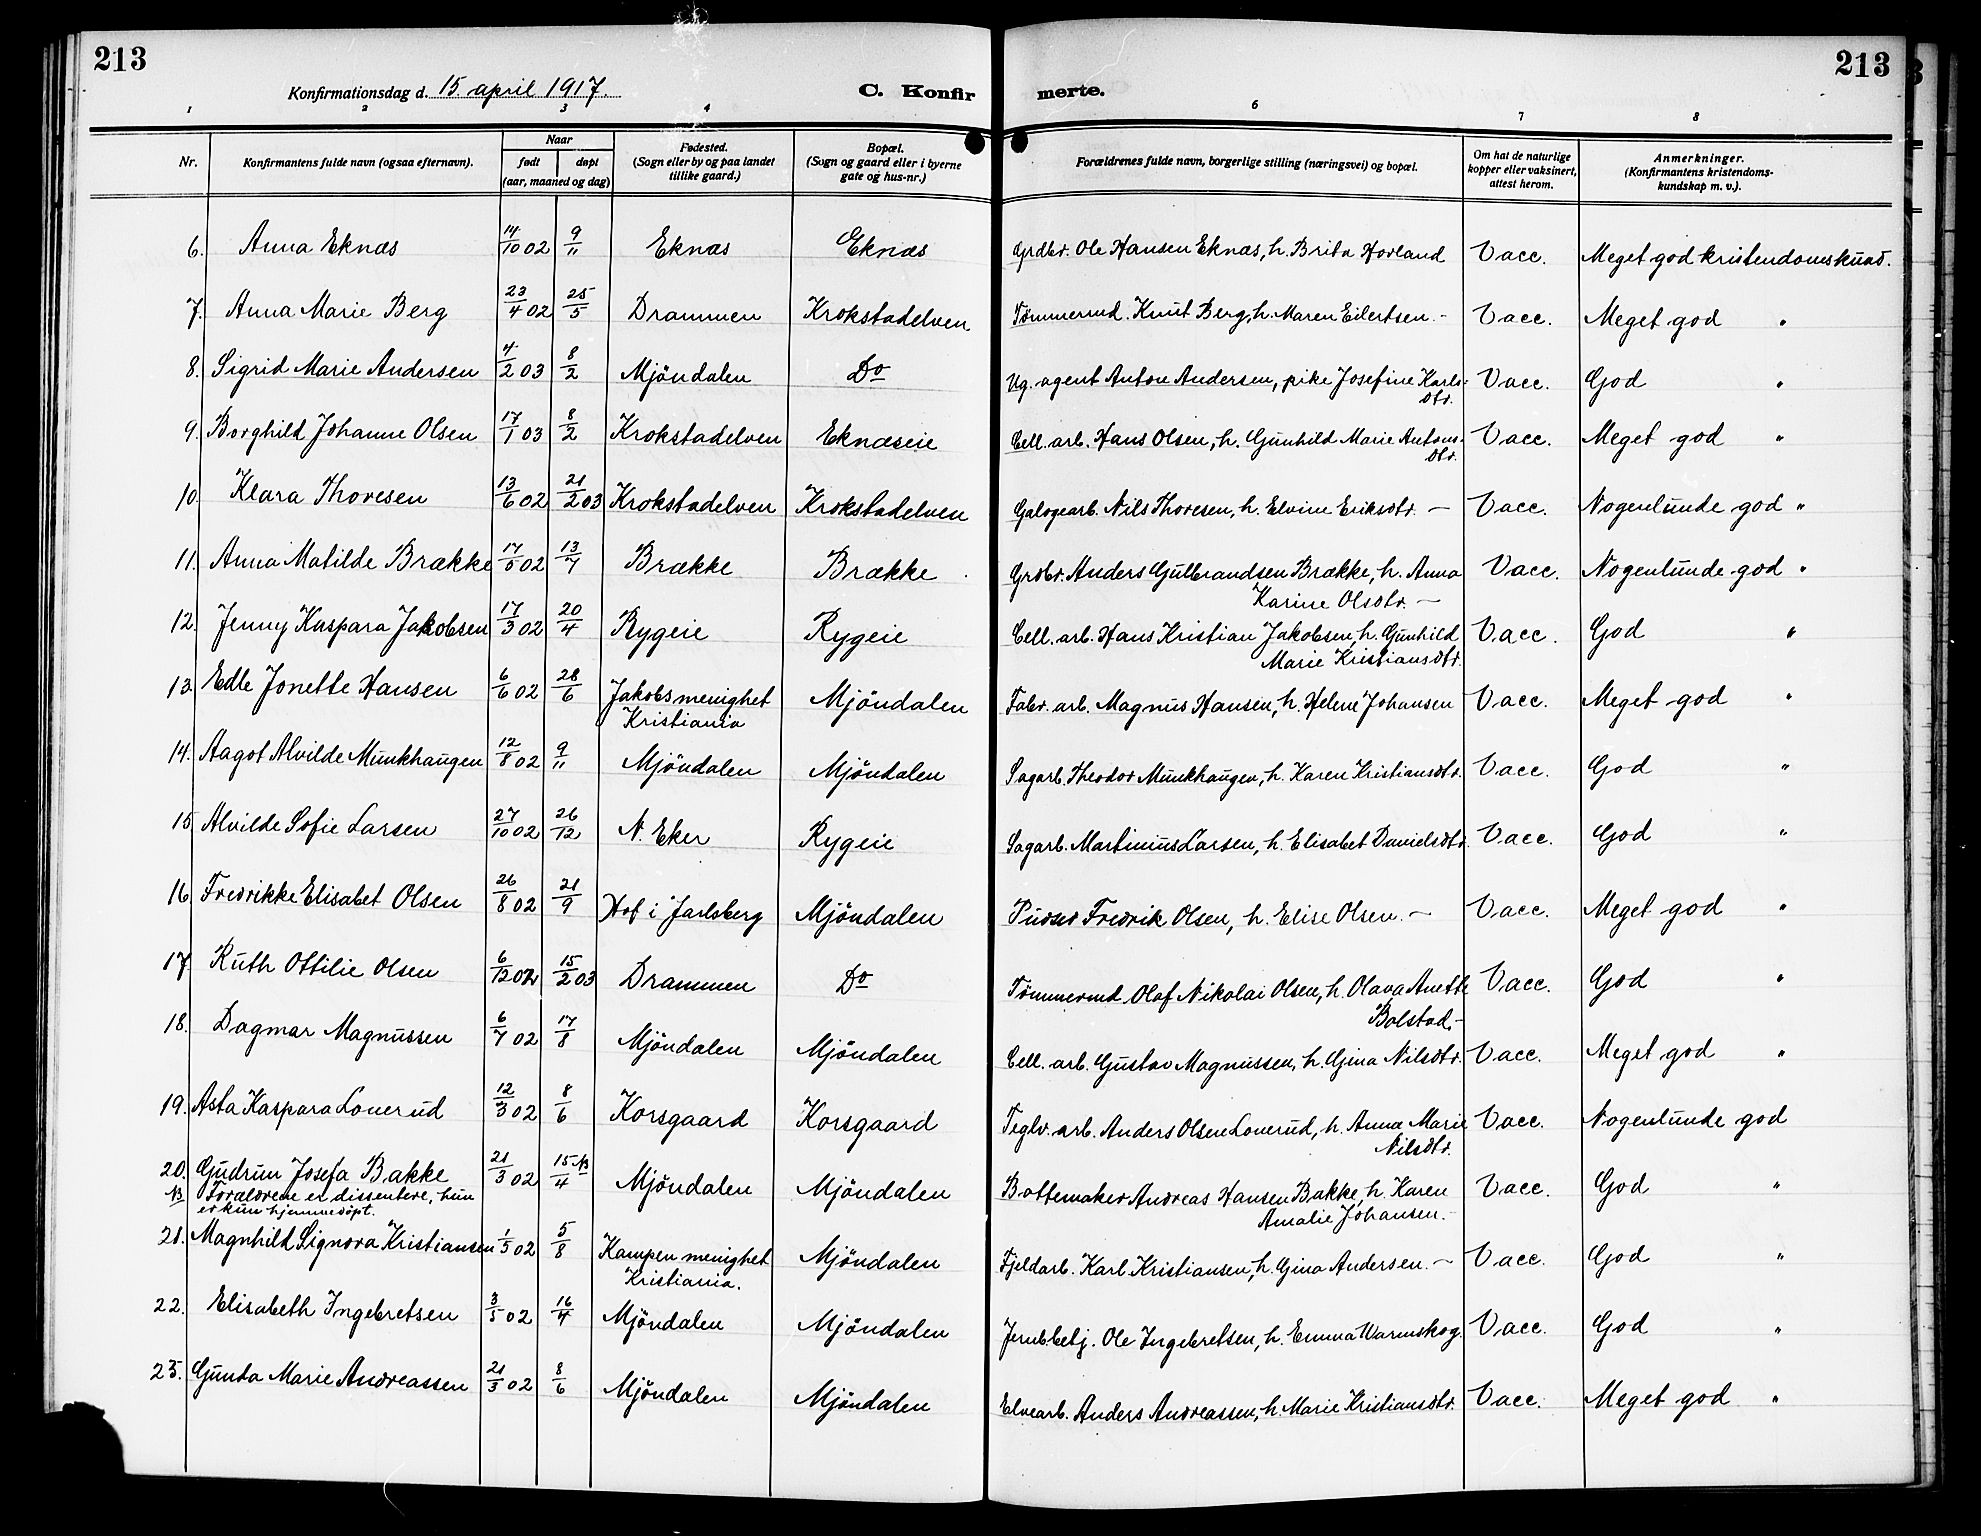 213
213
Konfirmationsdag d. 15. april 1917.
C. Konfir merte.
1 2 3 4 6 7 8
Nr.
Konfirmantens fulde navn (ogsaa efternavn).
Naar
født døpt
(aar, maaned og dag)
Fødested.
(Sogn eller by og paa landet
tillike gaard.)
Bopæl.
(Sogn og gaard eller i byerne
gate og hus-nr.)
Forældrenes fulde navn, borgerlige stilling (næringsvei) og bopæl.
Om hat de naturlige
kopper eller vaksinert,
attest herom.
Anmerkninger.
(Konfirmantens kristendoms-
kundskap m. v.).
6. Anna Eknæs 14/10 02 9/11 Eknæs Eknæs Grdbr. Ole Hansen Eknæs, h. Brita Horland Vacc. Meget god kristendomskund.
7. Anna Marie Berg 23/4 02 25/5 Drammen Krokstadelven Tømmermd. Knut Berg, h. Maren Eilertsen. - Vacc. Meget god "
8. Sigrid Marie Andersen 4/2 03 8/2 Mjöndalen Do Ug. agent Anton Andersen, pike Josefine Karls-
dtr. Vacc. God "
9. Borghild Johanne Olsen 17/1 03 8/2 Krokstadelven Eknæseie Cell. arb. Hans Olsen, h. Gunhild Marie Antons-
dtr. Vacc. Meget god "
10. Klara Thoresen 13/6 02 21/2 03 Krokstadelven Krokstadelven Galogearb. Nils Thoresen, h. Elvine Eriksdtr. - Vacc. Nogenlunde god "
11. Anna Matilde Brække 17/5 02 13/7 Brække Brække Grdbr. Anders Gulbrandsen Brække, h. Anna
Karine Olsdtr. - Vacc. Nogenlunde god "
12. Jenny Kaspara Jakobsen 17/3 02 20/4 Rygeie Rygeie Cell. arb. Hans Kristian Jakobsen, h. Gunhild
Marie Kristiansdtr. Vacc. God "
13. Edle Jonette Hansen 6/6 02 28/6 Jakobs menighet
Kristiania Mjöndalen Fabr. arb. Magnus Hansen, h. Helene Johansen Vacc. Meget god "
14. Aagot Alvilde Munkhaugen 12/8 02 9/11 Mjöndalen Mjöndalen Sagarb. Theodor Munkhaugen, h. Karen Kristiansdtr. Vacc. God "
15 Alvilde Sofie Larsen 27/10 02 26/12 N. Eker Rygeie Sagarb. Martinius Larsen, h. Elisabet Davidsdtr. Vacc. God "
16 Fredrikke Elisabet Olsen 26/8 02 21/9 Hof i Jarlsberg Mjöndalen Pudser Fredrik Olsen, h. Elise Olsen. - Vacc. Meget god "
17 Ruth Ottilie Olsen 6/12 02 15/2 03 Drammen Do Tömmermd. Olaf Nikolai Olsen, h. Olava Anette
Bolstad. - Vacc. God "
18. Dagmar Magnussen 6/7 02 17/8 Mjöndalen Mjöndalen Cell. arb. Gustav Magnussen, h. Gina Nilsdtr. Vacc. Meget god "
19. Asta Kaspara Louerud 12/3 02 8/6 Korsgaard Korsgaard Teglv. arb. Anders Olsen Louerud, h. Anna Marie
Nilsdtr. Vacc. Nogenlunde god
20. Gudrun Josefa Bakke 21/3 02 15/4 NB Mjöndalen Mjöndalen Bøttemaker Andreas Hansen Bakke, h. Karen
Amalie Johansen. - Vacc. God "
NB Forældrene er dissentere, hun
er kun hjemmedöpt.
21. Magnhild Signora Kristiansen 1/5 02 5/8 Kampen menighet
Kristiania. Mjöndalen Fjeldarb. Karl Kristiansen, h. Gina Andersen. - Vacc. God "
22. Elisabeth Ingebretsen 3/5 02 16/4 Mjöndalen Mjöndalen Jernb.betj. Ole Ingebretsen, h. Emma Warmskog. Vacc. God "
23. Gunda Marie Andreassen 21/3 02 8/6 Mjöndalen Mjöndalen Elvearb. Anders Andreassen, h. Marie Kristiansdtr. Vacc. Meget god "